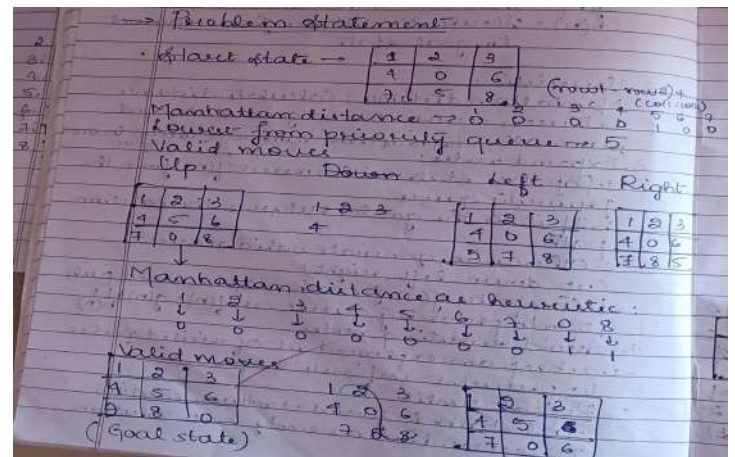 → Problem statement
2
3
4
5
6
7
8
• Start state → 1 2 3
4 0 6
7 5 8
Manhattan distance → 1 2 3 4 5 6 7
0 0 0 0 1 0 0
Lowest from priority queue → 5
Valid moves
Up Down Left Right
1 2 3
4 5 6
7 0 8
1 2 3
4
1 2 3
4 0 6
5 7 8
1 2 3
4 0 6
7 8 5
↓
Manhattan distance as heuristic :
1 2 3 4 5 6 7 0 8
↓ ↓ ↓ ↓ ↓ ↓ ↓ ↓ ↓
0 0 0 0 0 0 0 1 1
Valid moves
1 2 3
4 5 6
7 8 0
(Goal state)
1 2 3
4 0 6
7 5 8
1 2 3
4 5 8
7 0 6